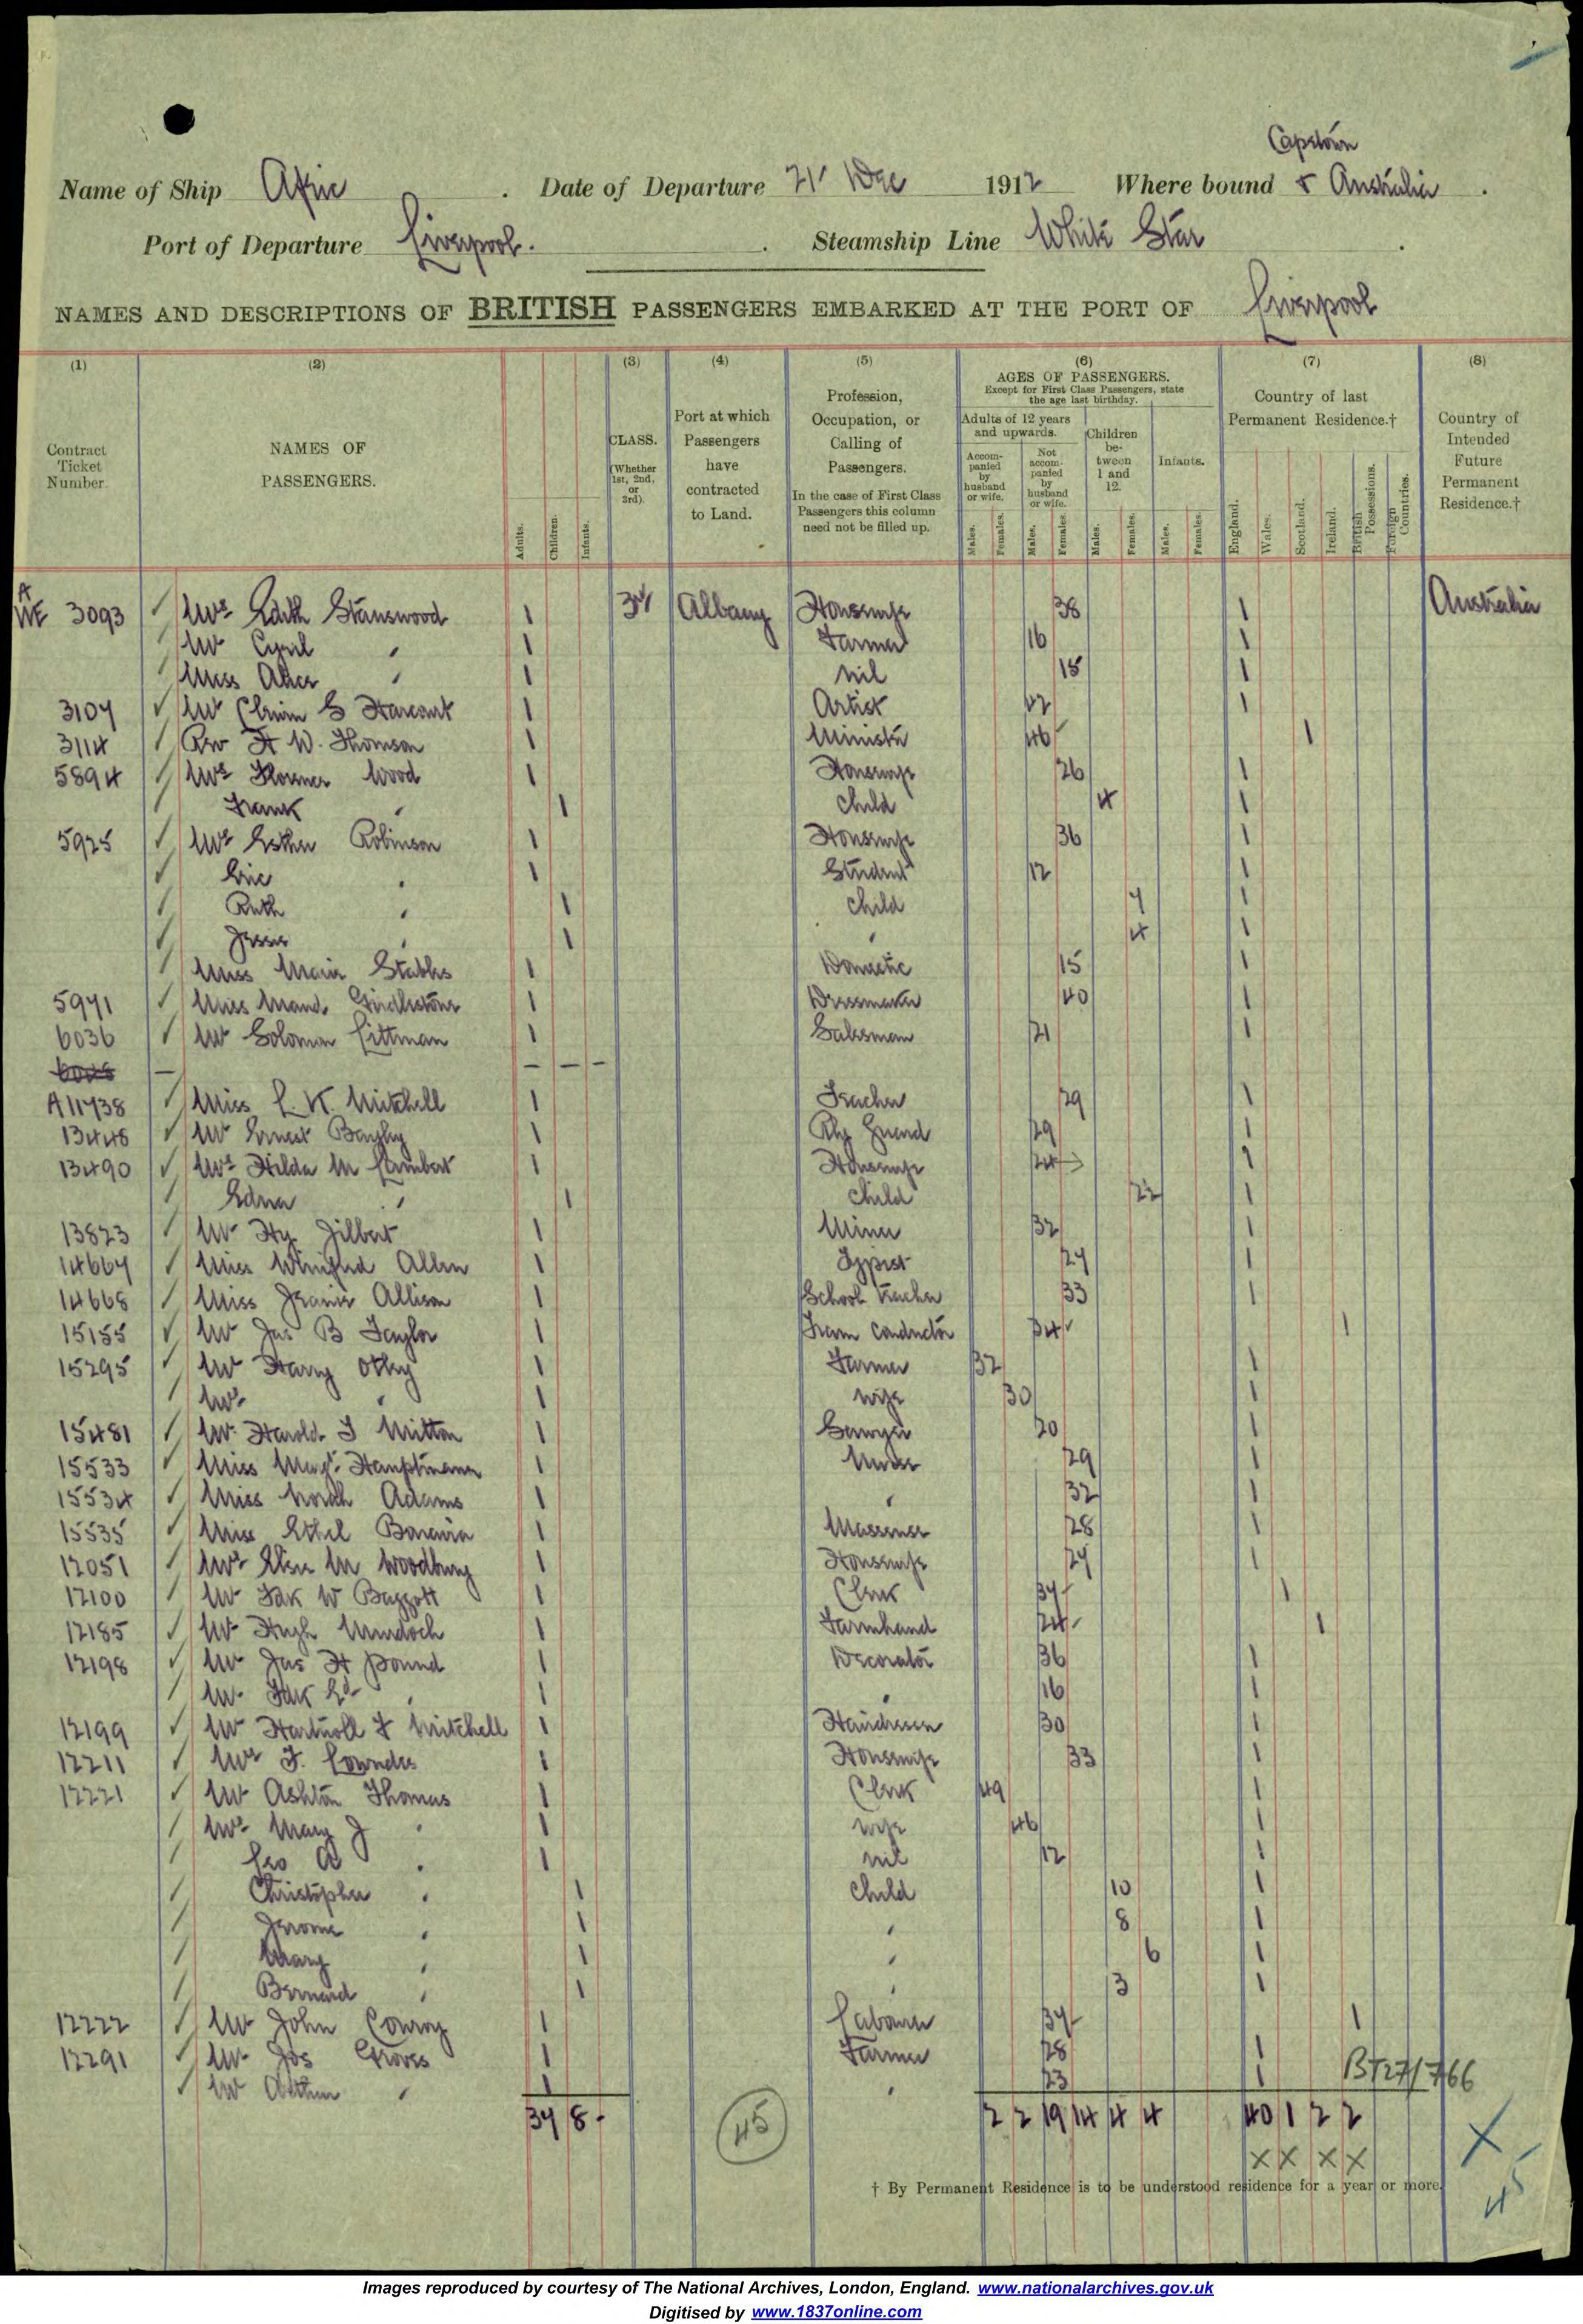 Capetown
Name of Ship Afric . Date of Departure 21' Dec 1912 Where bound & Australia .
Port of Departure Liverpool. . Steamship Line White Star .
NAMES AND DESCRIPTIONS OF BRITISH PASSENGERS EMBARKED AT THE PORT OF Liverpool
(1) (2) (3) (4) (5) (6) (7) (8)
Contract Ticket Number. NAMES OF PASSENGERS. Adults. Children. Infants. CLASS. (Whether 1st, 2nd, or 3rd). Port at which Passengers have contracted to Land. Profession, Occupation, or Calling of Passengers. In the case of First Class Passengers this column need not be filled up. AGES OF PASSENGERS. Except for First Class Passengers, state the age last birthday. Adults of 12 years and upwards. Accompanied by husband or wife. Males. Females. Not accompanied by husband or wife. Males. Females. Children between 1 and 12. Males. Females. Infants. Males. Females. Country of last Permanent Residence.† England. Wales. Scotland. Ireland. British Possessions. Foreign Countries. Country of Intended Future Permanent Residence.†
A
WE 3093 Mrs Edith Stanswood 1 3rd Albany Housewife 38 1 Australia
Mr Cyril " 1 Farmer 16 1
Miss Alice " 1 nil 15 1
3107 Mr G Harcourt 1 Artist 42 1
3114 Rev H W. Thomson 1 Minister 46 1
5894 Mrs Florence Wood 1 Housewife 26 1
Frank " 1 Child 4 1
5925 Mrs Esther Robinson 1 Housewife 36 1
Eric " 1 Student 12 1
Ruth " 1 Child 7 1
Jessie " 1 " 4 1
Miss Marie Stables 1 Domestic 15 1
5971 Miss Maud Girdlestone 1 Dressmaker 40 1
6036 Mr Solomon Littman 1 Salesman 21 1
— — — —
A11738 Miss L K Mitchell 1 Teacher 29 1
13448 Mr Ernest Bayley 1 Rly Guard 29 1
13490 Mrs Hilda M Lambert 1 Housewife 24 1
Edna " 1 Child 1
13823 Mr Hy Gilbert 1 Miner 32 1
14667 Miss Winifred Allen 1 Typist 27 1
14668 Miss Jeanie Allison 1 School Teacher 33 1
15155 Mr Jas B Taylor 1 Tram Conductor 34 1
15295 Mr Harry Otley 1 Farmer 32 1
Mrs " 1 wife 30 1
15481 Mr Harold J Mitton 1 Sawyer 20 1
15533 Miss Magt Hauptmann 1 Nurse 29 1
15534 Miss Norah Adams 1 " 32 1
15535 Miss Ethel Bonavia 1 Masseuse 28 1
12051 Mrs Elsie M Woodbury 1 Housewife 27 1
12100 Mr Fdk W Baggott 1 Clerk 37 1
12185 Mr Hugh Murdoch 1 Farmhand 24 1
12198 Mr Jas H Pound 1 Decorator 36 1
Mr Fdk Ed " 1 " 16 1
12199 Mr Hartnoll F Mitchell 1 Hairdresser 30 1
12211 Mrs F. Lowndes 1 Housewife 33 1
12221 Mr Ashton Thomas 1 Clerk 49 1
Mrs Mary J " 1 wife 46 1
Leo A " 1 nil 12 1
Christopher " 1 Child 10 1
Jerome " 1 " 8 1
Mary " 1 " 6 1
Bernard " 1 " 3 1
12222 Mr John Conroy 1 Labourer 37 1
12291 Mr Jos Groves 1 Farmer 28 1
Mr Arthur " 1 " 23 1
BT27/766
37 8 - 45 2 2 19 14 4 4 40 1 2 2
X X X X X
† By Permanent Residence is to be understood residence for a year or more.
45
Images reproduced by courtesy of The National Archives, London, England. www.nationalarchives.gov.uk
Digitised by www.1837online.com